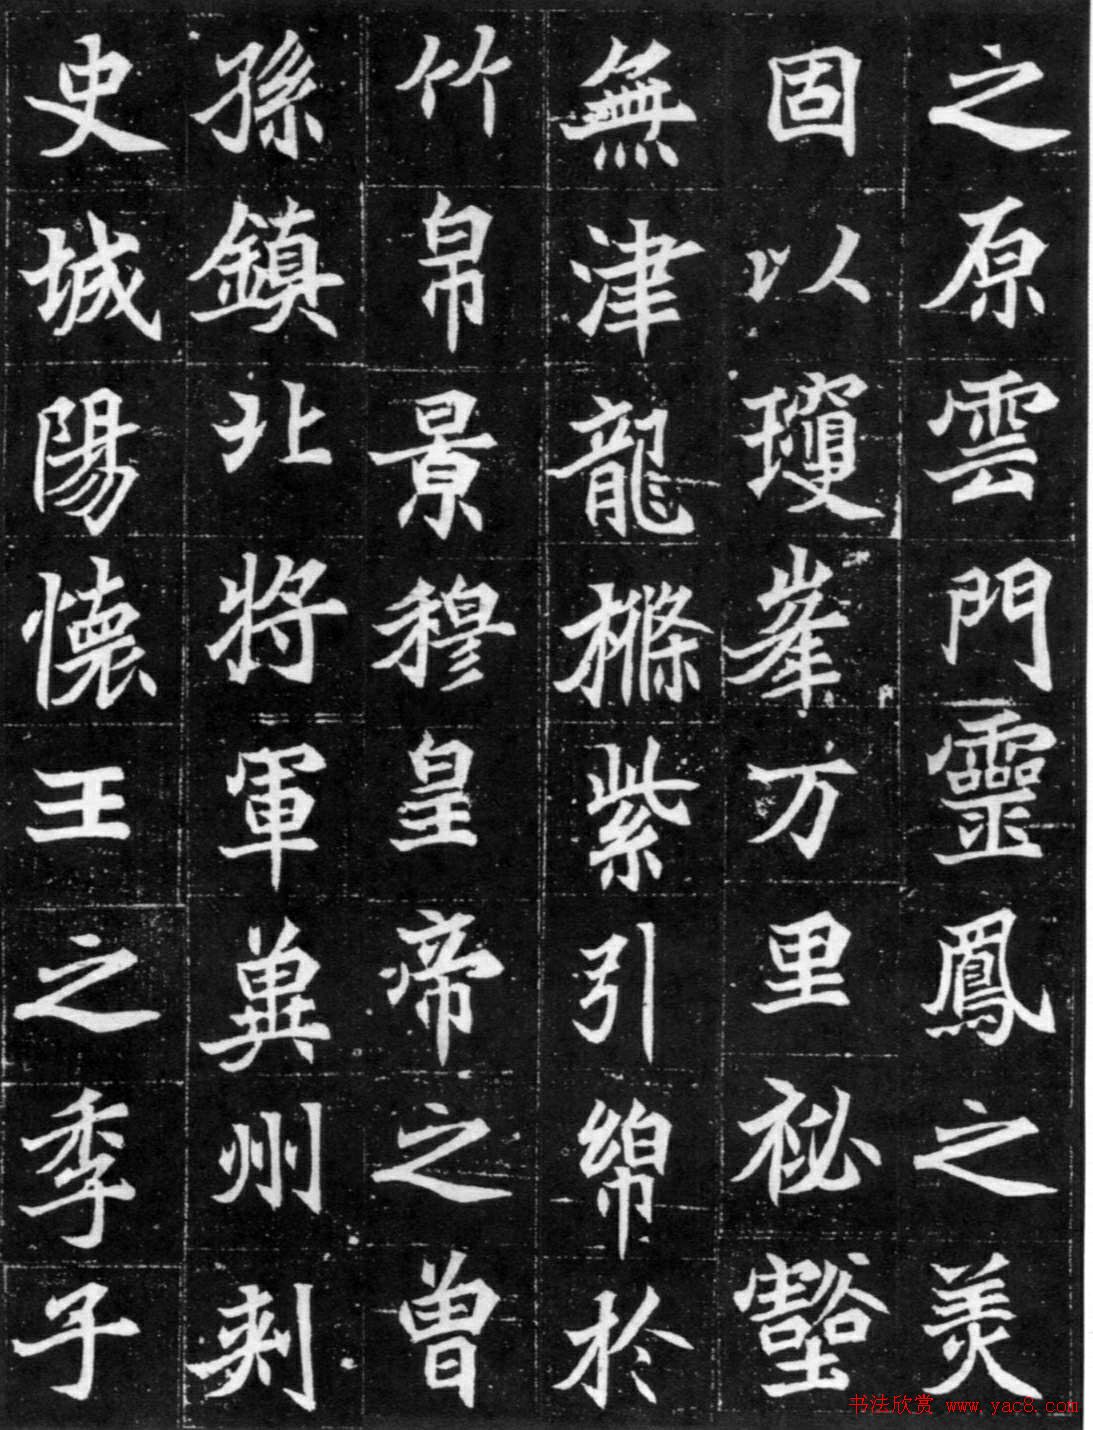 之原雲門靈鳳之美
固以瓊峯万里祕壑
無津龍樤紫引綿於
竹帛景穆皇帝之曾
孫鎮北將軍兾州刺
史城陽懷王之季子
书法欣赏 www.yac8.com